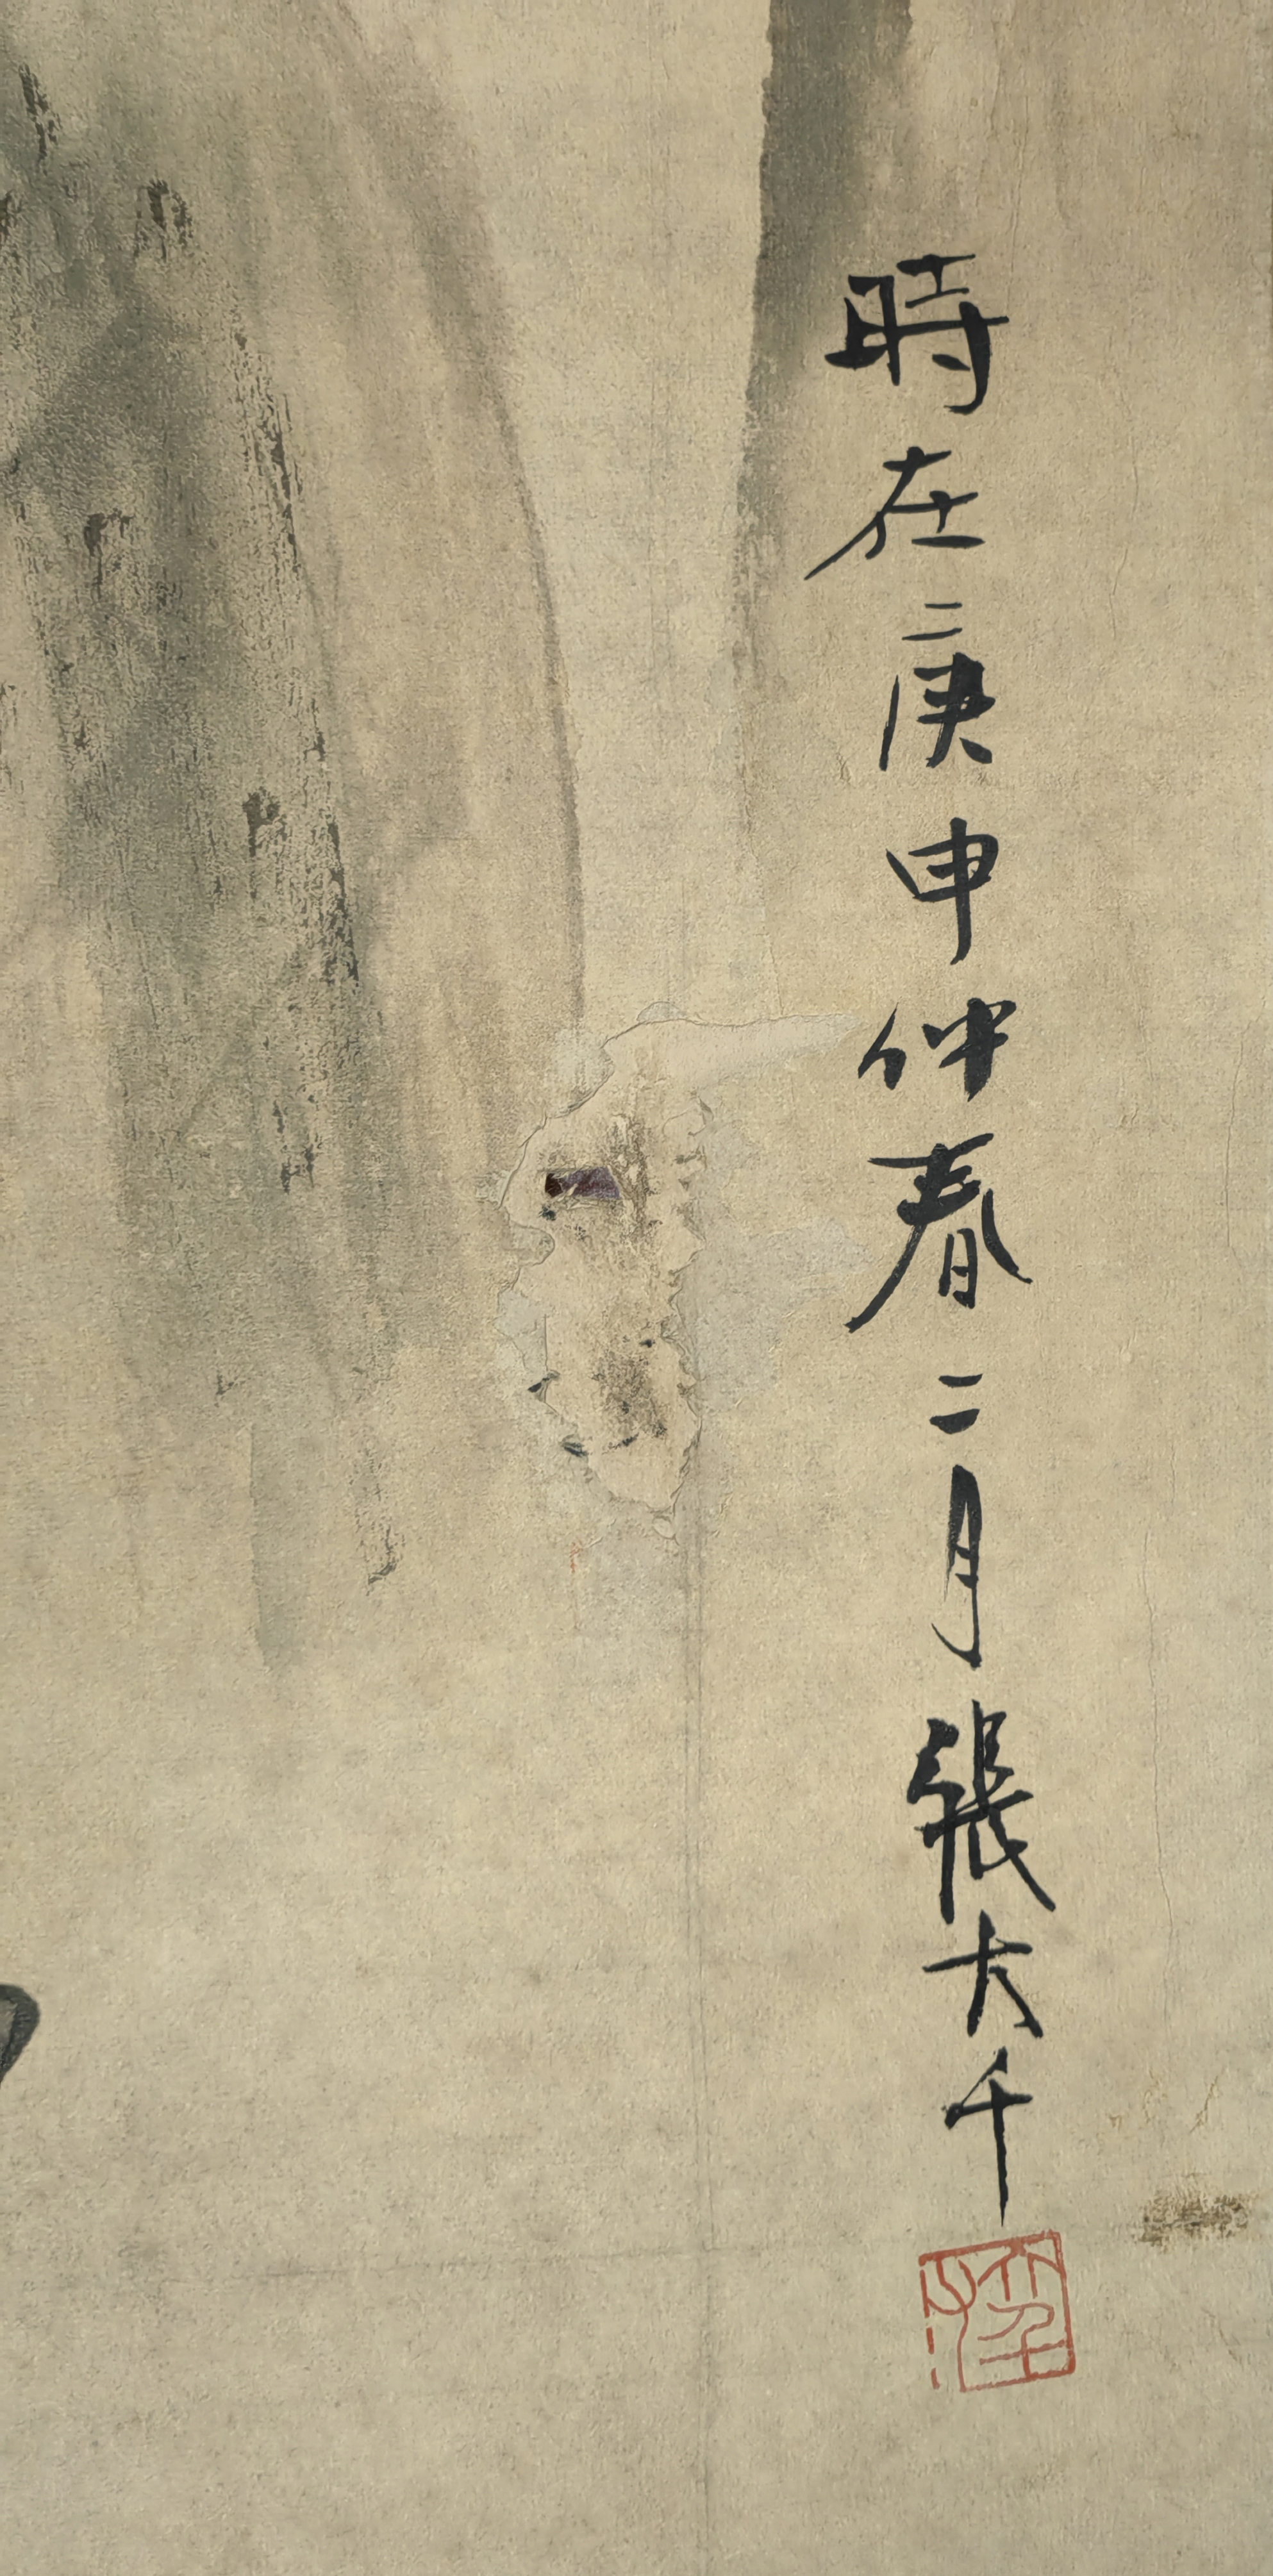 時在庚申仲春二月張大千